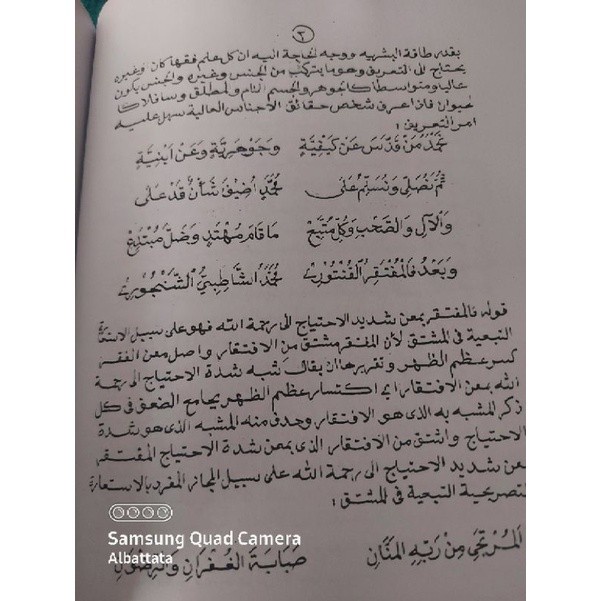 ٢
بقدر طاقة البشريه ووجه الحاجة اليه ان كل علم فقها كان وغيره
يحتاج الى التعريف وهو ما يتركب من الجنس وغيره والجنس يكون
عاليا ومتواسطا كالجوهر والجسم النام والمطلق وسافلا كا
لحيوان فاذا عرف شخص حقائق الاجناس العالية سهل عليه
امر التعريف :
نحمد من قدّس عن كيفية وجوهرية وعن اينية
ثم نصلي ونسلم على محمد اضيف شأن قد على
والآل والصحب وكل متبع ما قام مهتد وضل مبتدع
وبعد فالمفتقر الفنتوري محمد الشاطبي الشنجوري
قوله فالمفتقر بمعن شديد الاحتياج الى رحمة الله فهو على سبيل الاستعارة
التبعية في المشتق لأن المفتقر مشتق من الافتقار واصل معن الفقر
كسر عظم الظهر وتقريرها ان يقال شبه شدة الاحتياج الى رحمة
الله بمعن الافتقار اي اكتسار عظم الظهر بجامع الضعف في كل
ذكر المشبه به الذى هو الافتقار وحذف منه المشبه الذى هو شدة
الاحتياج واشتق من الافتقار الذى بمعن شدة الاحتياج المفتقر
بمعن شديد الاحتياج الى رحمة الله على سبيل المجاز المفرد بالاستعارة
التصريحية التبعية في المشتق :
المرتجي من ربه المنان صبابة الغفران والرضوان
Samsung Quad Camera
Albattata